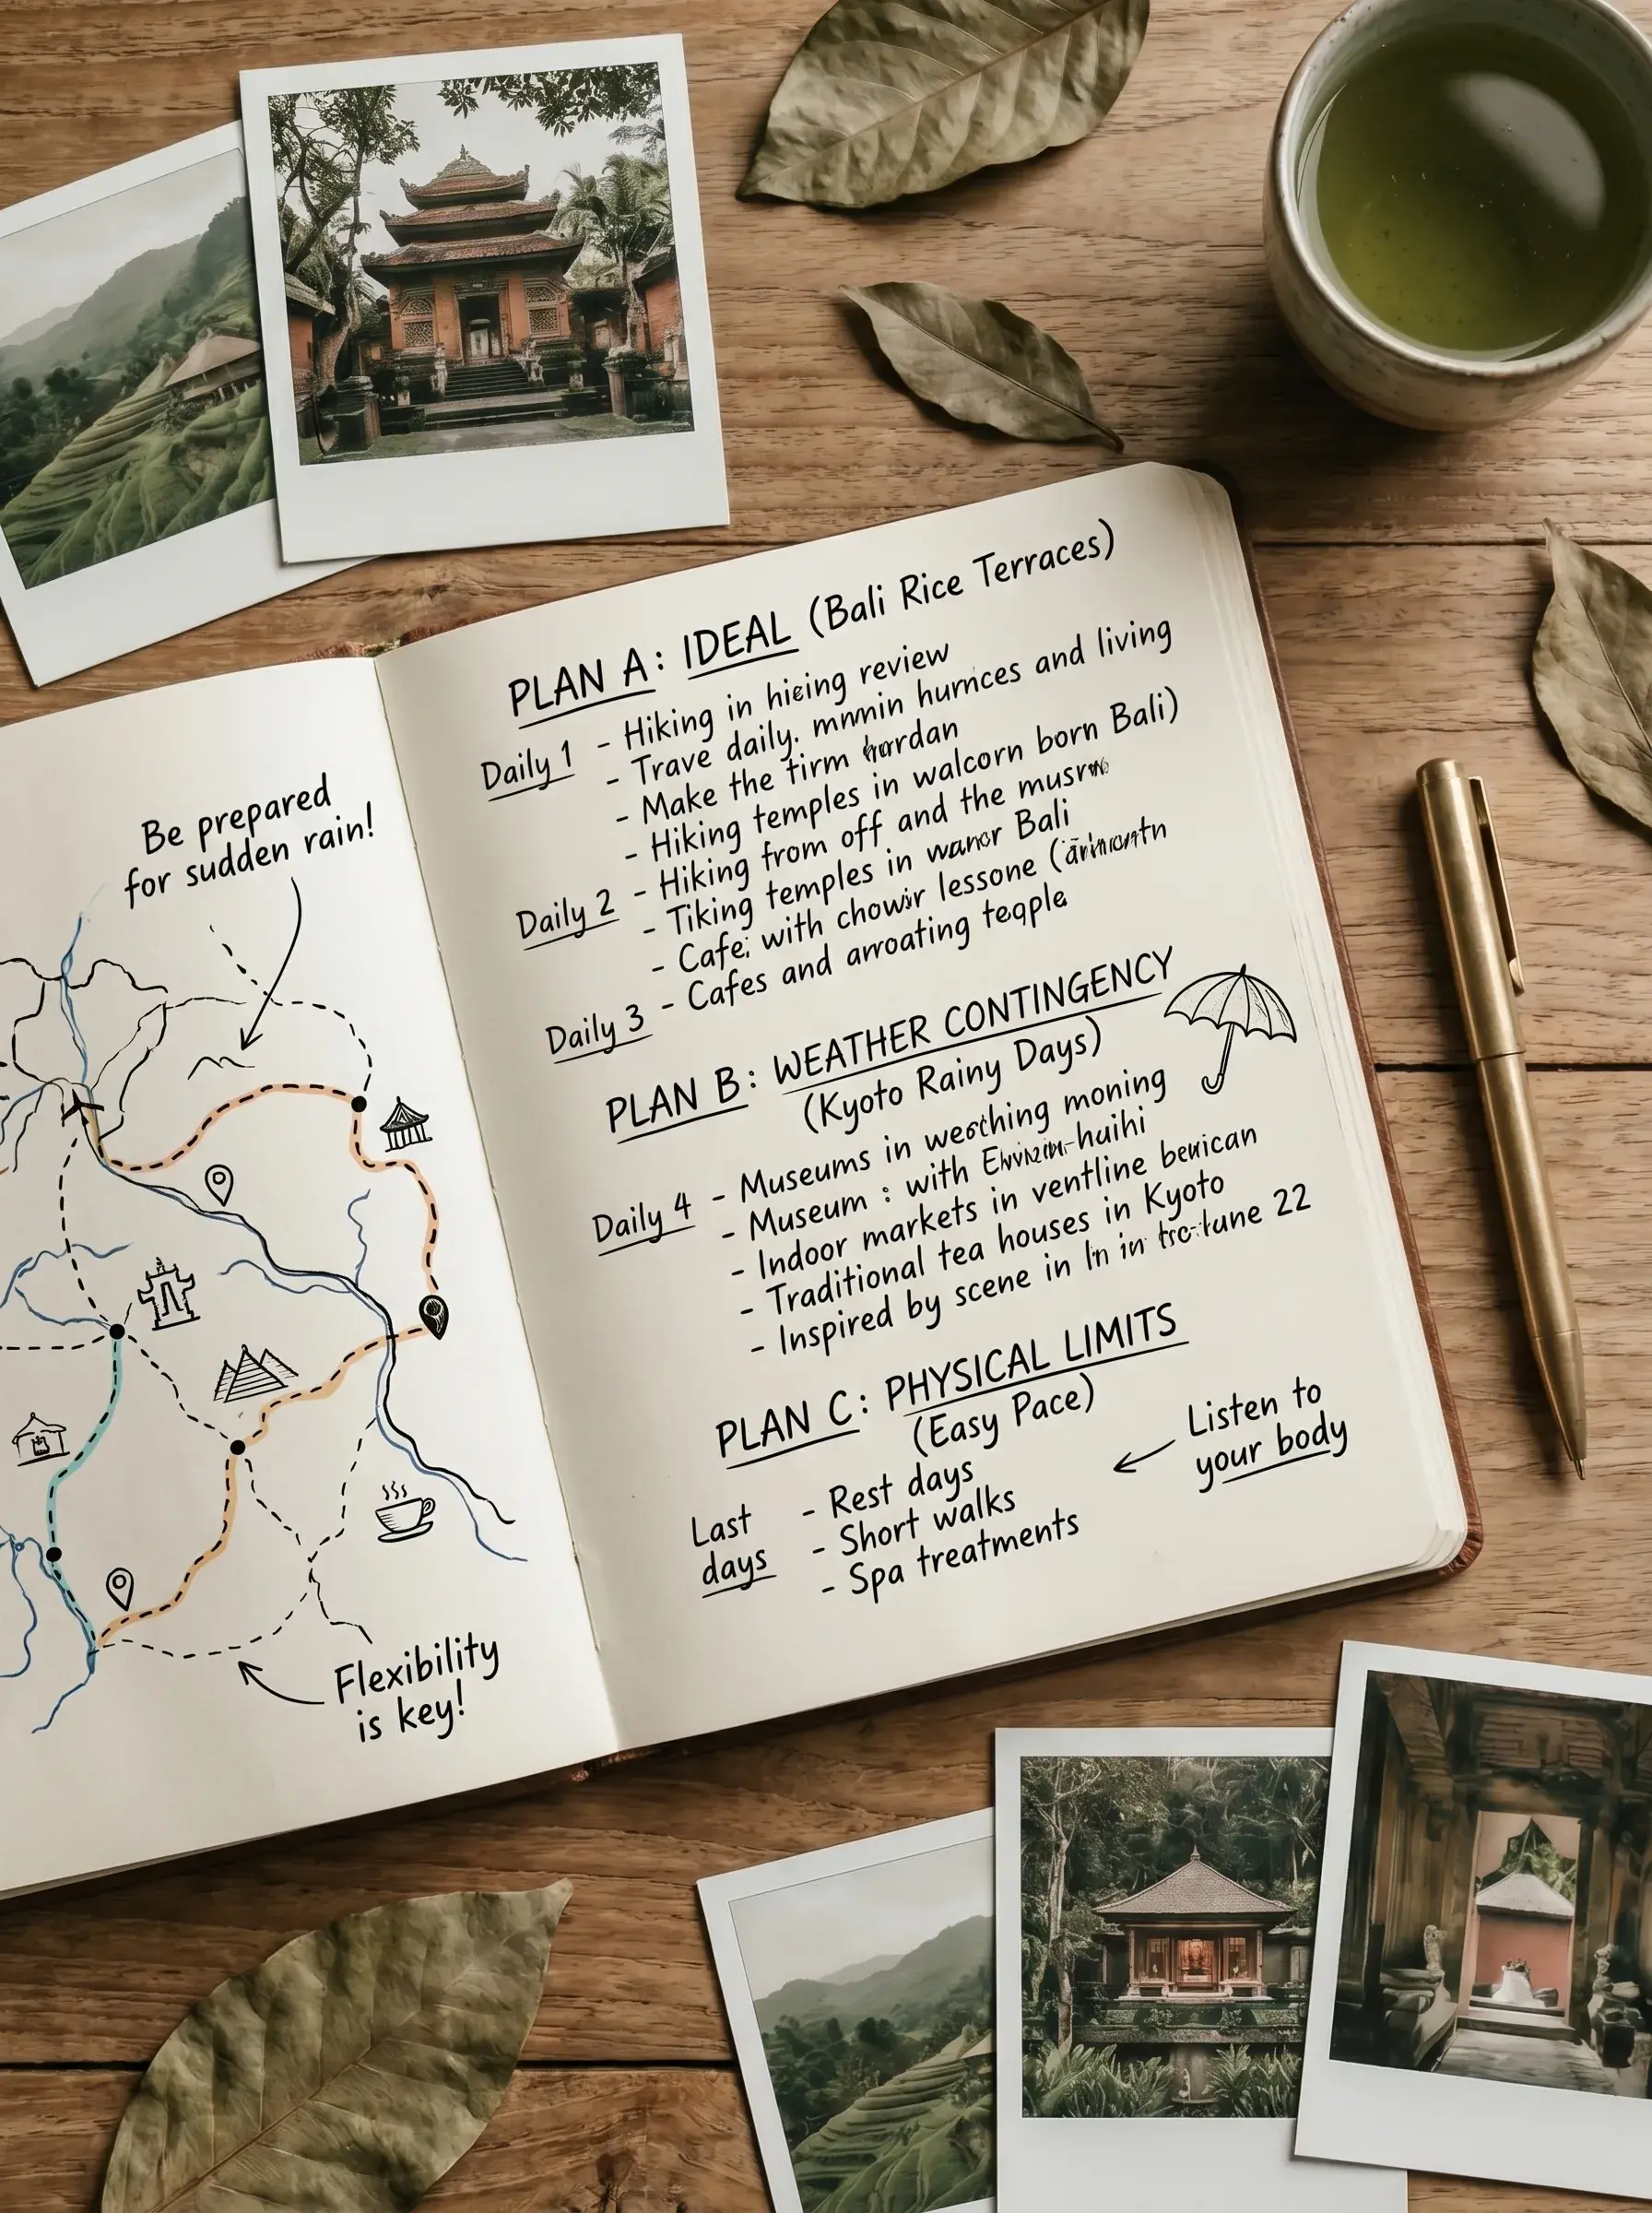 Be prepared
for sudden rain!
Flexibility
is key!
PLAN A: IDEAL (Bali Rice Terraces)
Daily 1 - Hiking in review
- Trave daily. and living
- Make the tirm
- Hiking temples in walcorn born Bali)
Daily 2 - Hiking from off and the
- Tiking temples in Bali
- Cafe; with lessone
Daily 3 - Cafes and arroating teqple
PLAN B: WEATHER CONTINGENCY
(Kyoto Rainy Days)
Daily 4 - Museums in moning
- Museum : with
- Indoor markets in ventline
- Traditional tea houses in Kyoto
- Inspired by scene in 22
PLAN C: PHYSICAL LIMITS
(Easy Pace)
Listen to
your body
Last
days
- Rest days
- Short walks
- Spa treatments